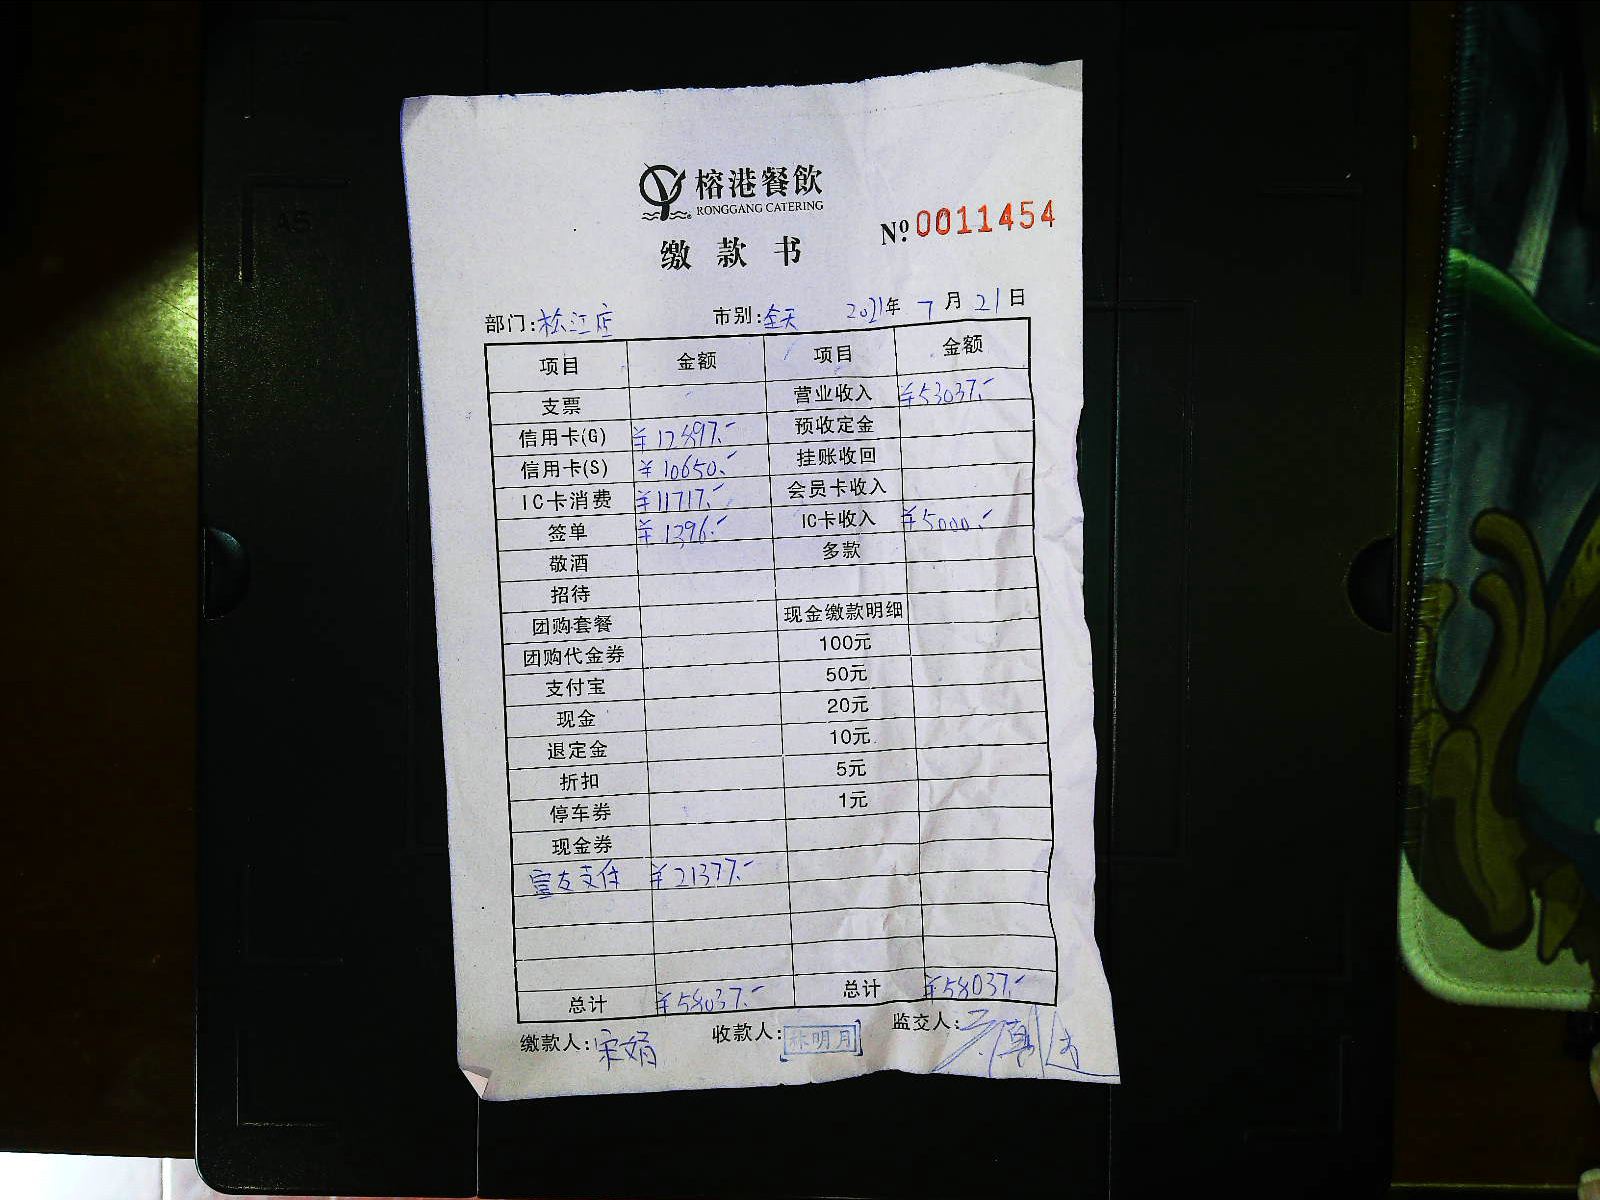 榕港餐飲
RONGGANG CATERING
缴款书 №0011454
部门:松江店 市别:全天 2021年 7月 21日
项目 金额 项目 金额
支票 营业收入 ¥53037.-
信用卡(G) ¥12897.- 预收定金
信用卡(S) ¥10650.- 挂账收回
IC卡消费 ¥11717.- 会员卡收入
签单 ¥1396.- IC卡收入 ¥5000.-
敬酒 多款
招待
团购套餐 现金缴款明细
团购代金券 100元
支付宝 50元
现金 20元
退定金 10元
折扣 5元
停车券 1元
现金券
富友支付 ¥21377.-
总计 ¥58037.- 总计 ¥58037.-
缴款人:宋娟 收款人:林明月 监交人:
A5